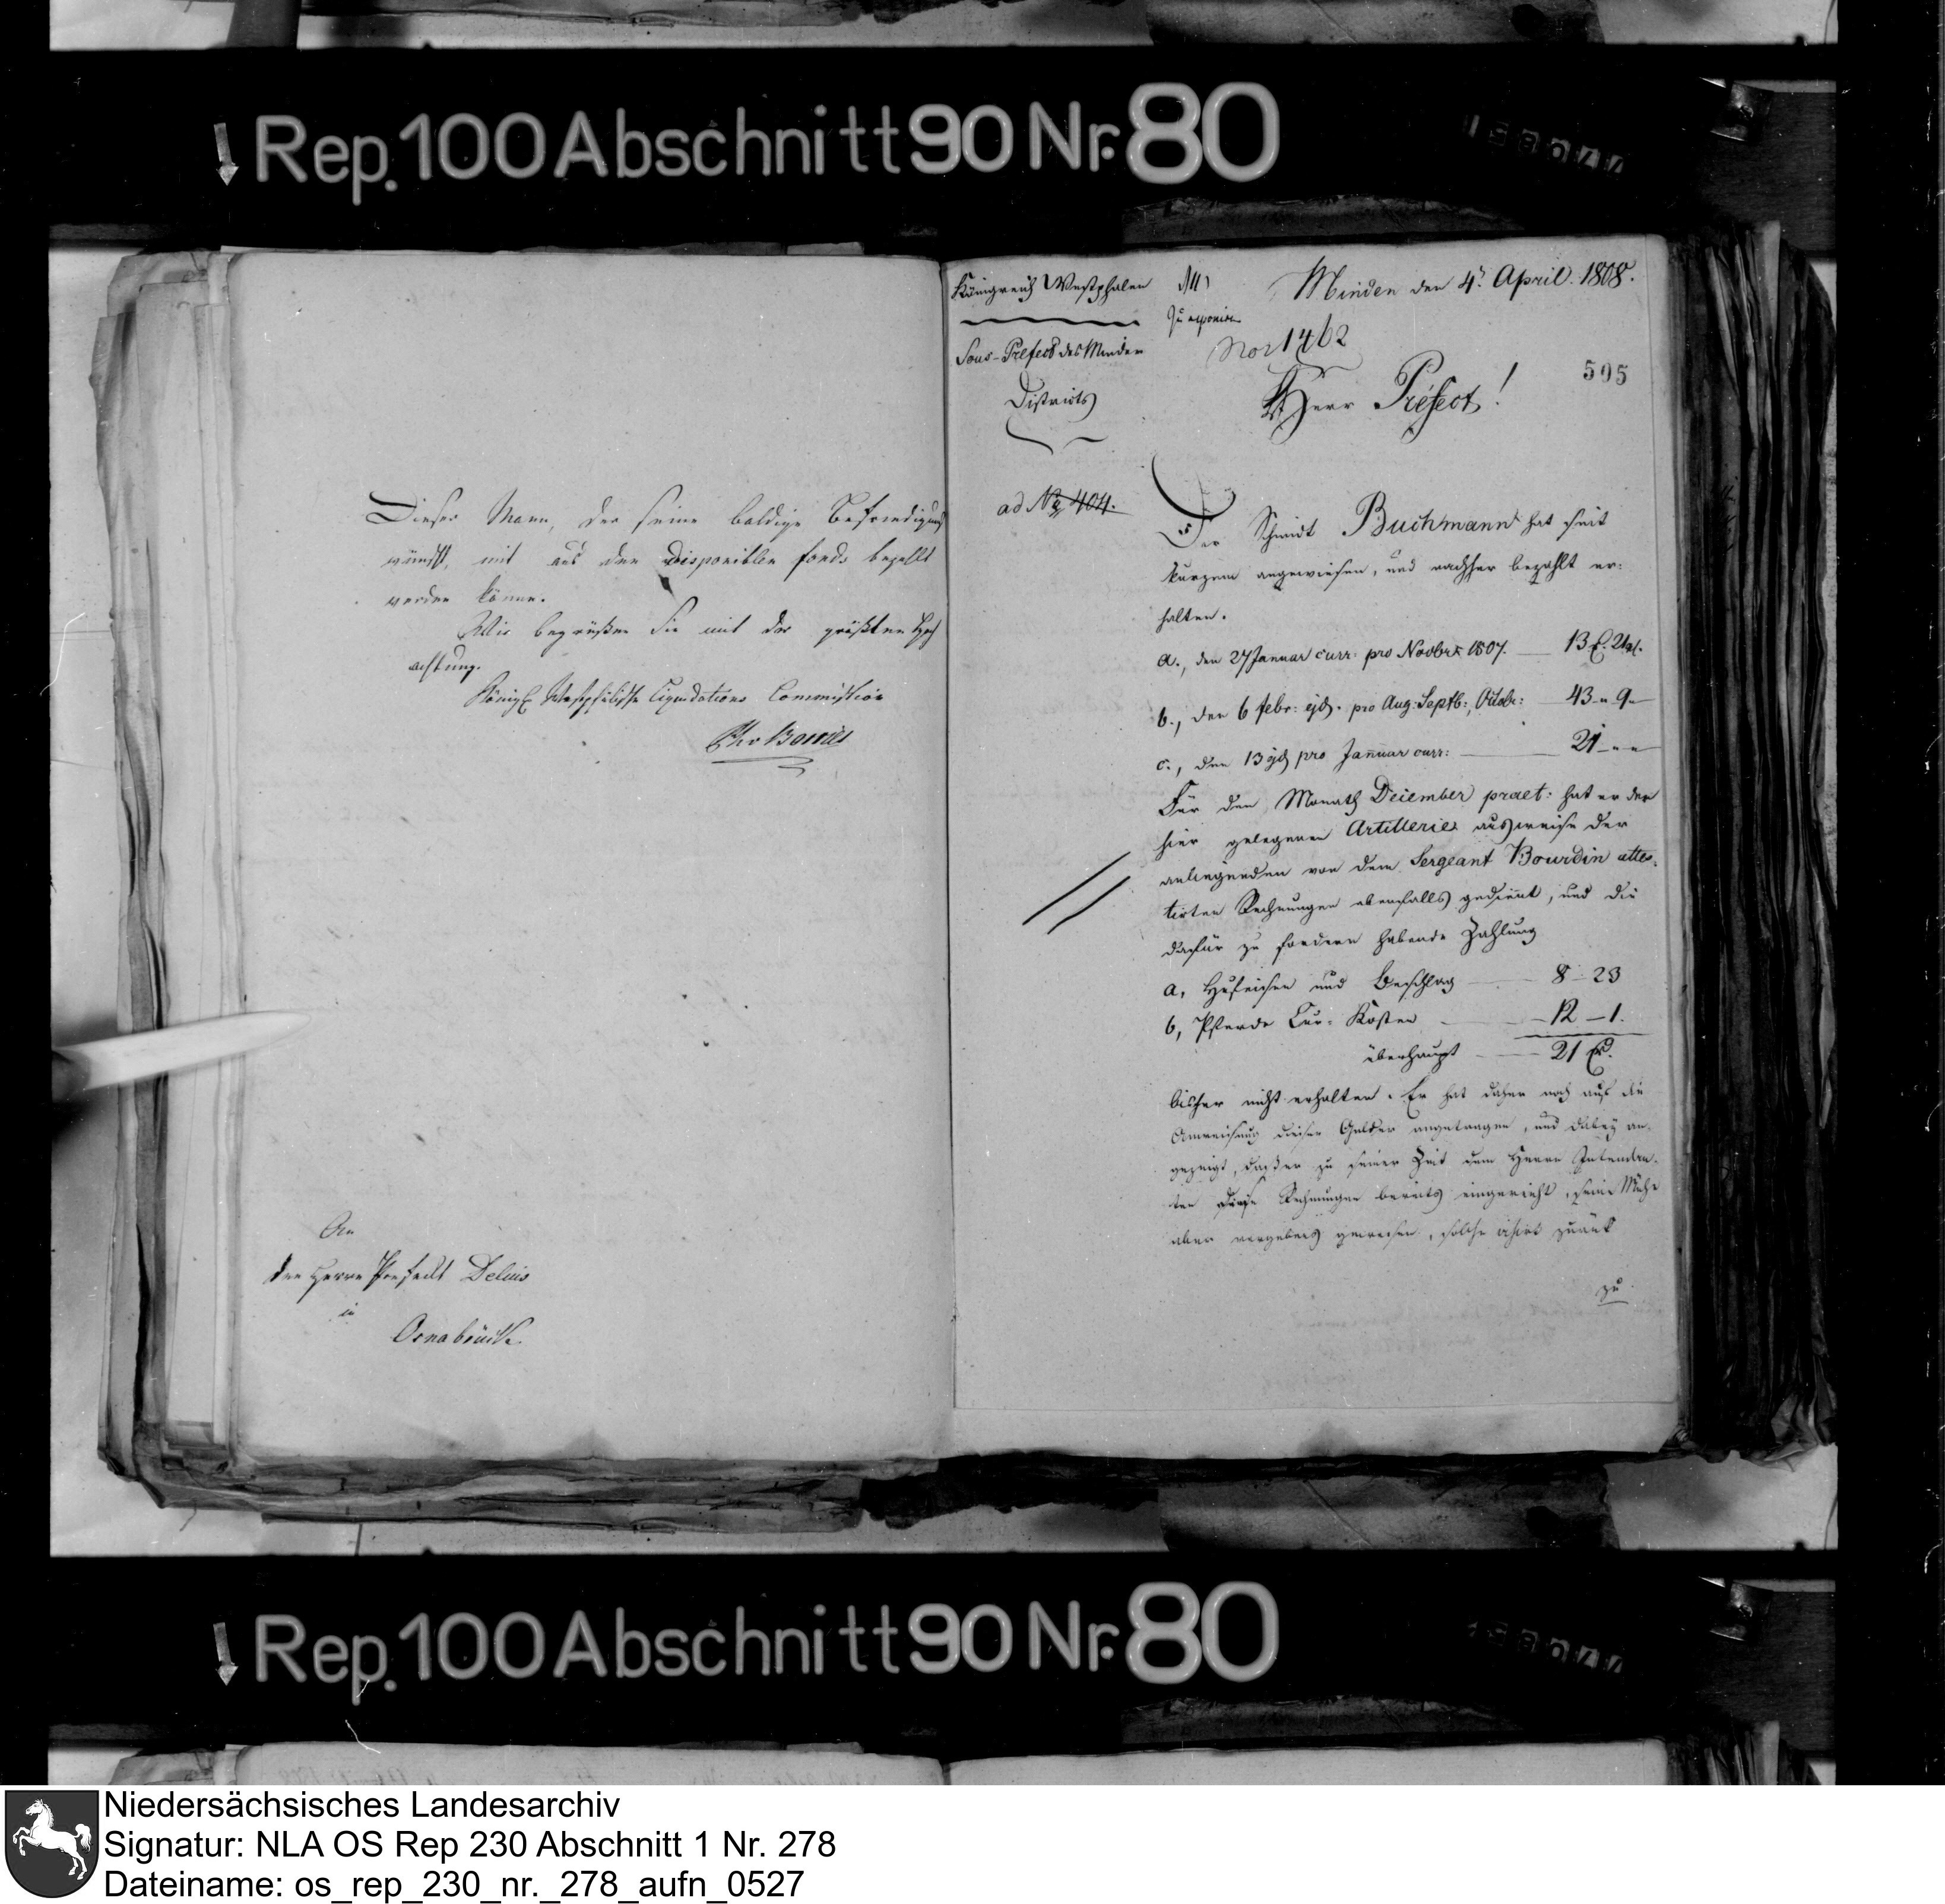 Rep. 100 Abschnitt 90 Nr. 80
Dieser Mann, der seine baldige Befriedigung
wünscht, mit aus den disponiblen fonds bezahlt
werden könne.
Wir begrüßen Sie mit der größten Hoch
achtung.
Königl Westphälische Liquidations Commission
An
den Herrn Prefect Delius
in
Osnabrück
Königreich Westphalen
Sous-Prefect des Minden
Districts
ad No 404.
Minden den 4t April 1808.
1462
505
Herr Préfect!
Der Schmidt Buchmann hat seit
kurzem angewiesen, und nachher bezahlt er:
halten.
a., den 27 Januar curr: pro Novbr: 1807. 13
b., den 6 febr: ejd. pro Aug: Septb:, Octobr: 43 " 9 "
c., den 13 ejd pro Januar curr: 21 " "
Für den Monath December praet: hat er der
hier gelegenen Artillerie ausweise der
anliegenden von dem Sergeant Bourdin attes:
tirten Rechnungen ebenfalls gedient, und die
dafür zu fordern habende Zahlung
a, Hufeisen und Beschlag 8 - 23
b, Pferde Cur: Kosten 12 - 1.
überhaupt 21
bisher nicht erhalten. Er hat daher noch auf die
Anweisung dieser Gelder angetragen, und dabey an:
gezeigt, daß er zu seiner Zeit dem Herrn Intendan:
ten diese Rechnungen bereits eingereicht, seine Mühe
aber vergebens gewesen, solche visirt zurück
zu
Rep. 100 Abschnitt 90 Nr. 80
Niedersächsisches Landesarchiv
Signatur: NLA OS Rep 230 Abschnitt 1 Nr. 278
Dateiname: os_rep_230_nr._278_aufn_0527